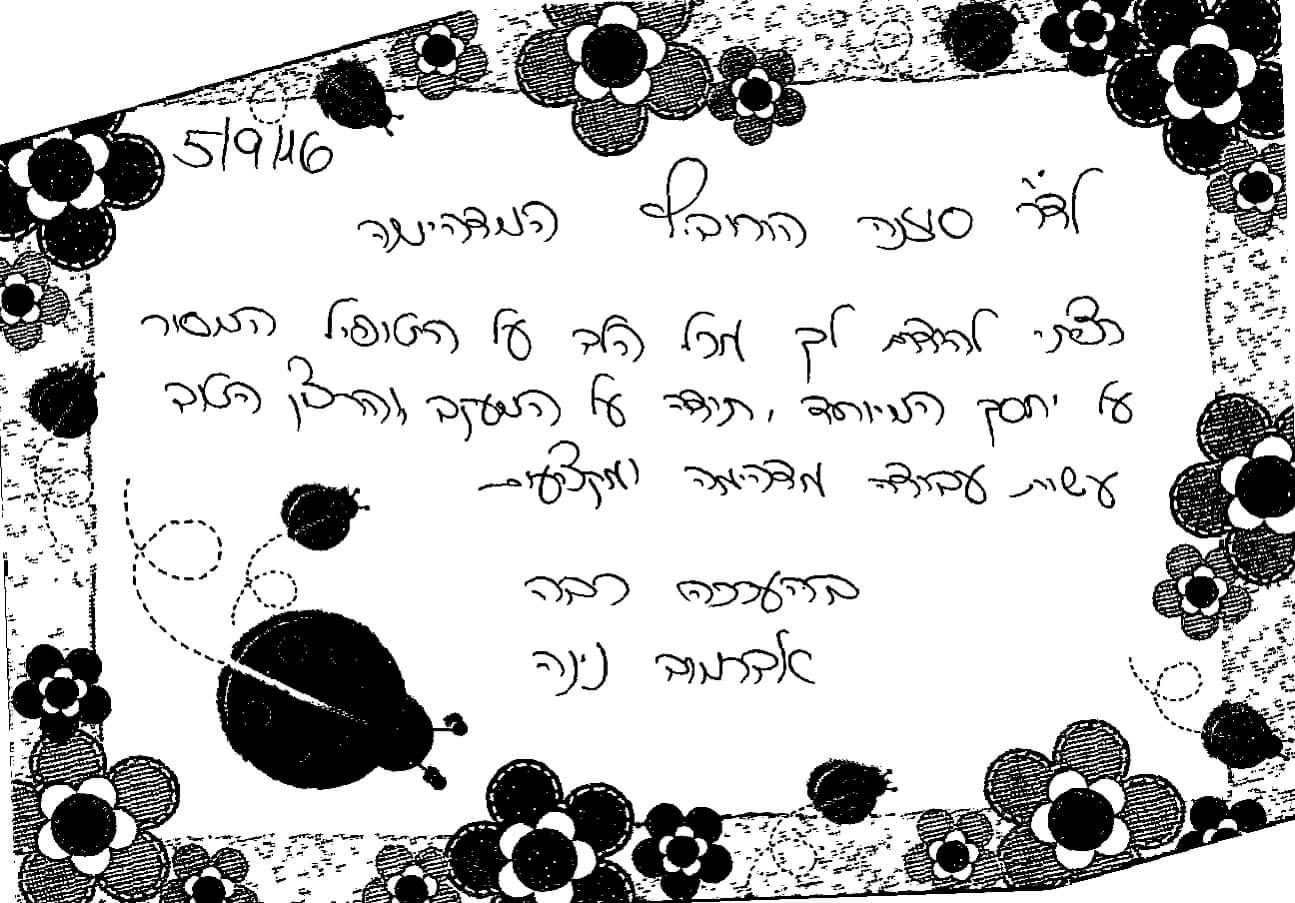 5/9/16
לדר' סגנה הורוביץ המדהימה
רציתי להודות לך מכל הלב על הטיפול המסור
על יחסך המיוחד, תודה על המעקב והרצון הטוב
עשית עבודה מדהימה ומקצועית
בהערכה רבה
אברמוב נינה